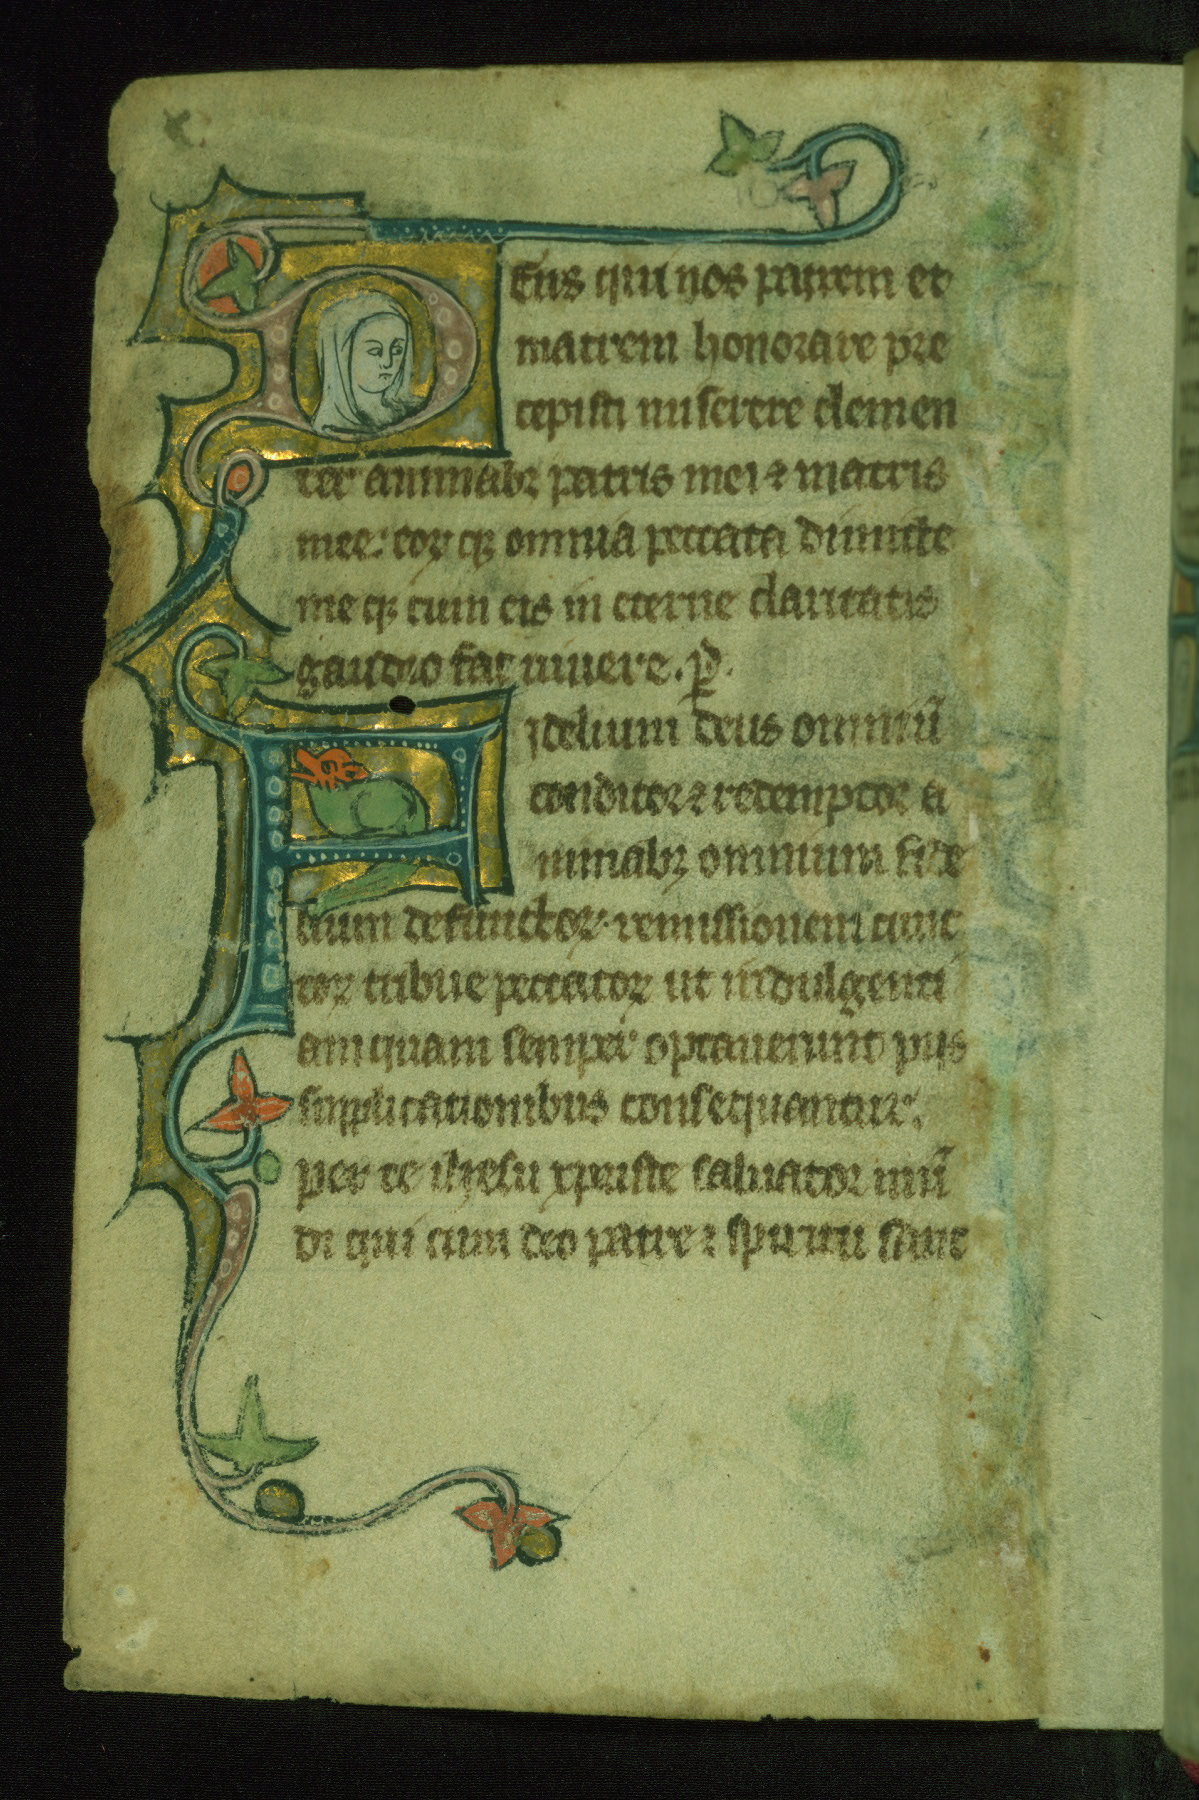 Deus qui nos patrem et
matrem honorare pre
cepisti miserere clemen
ter animabȝ patris mei ⁊ matris
mee. eoꝝ qȝ omnia peccata dimitte
me qȝ cum eis in eterne claritatis
gaudio fac uiuere. p̄.
Fidelium deus omniū
conditor ⁊ redemptor a
nimabȝ omnium fide
lium defunctoꝝ remissionem cunc
toꝝ tribue peccatoꝝ ut indulgenti
am quam semper optauerunt piis
supplicationibus consequantur.
per te ihesu xpriste saluator mū
di qui cum deo patre ⁊ spiritu sanc